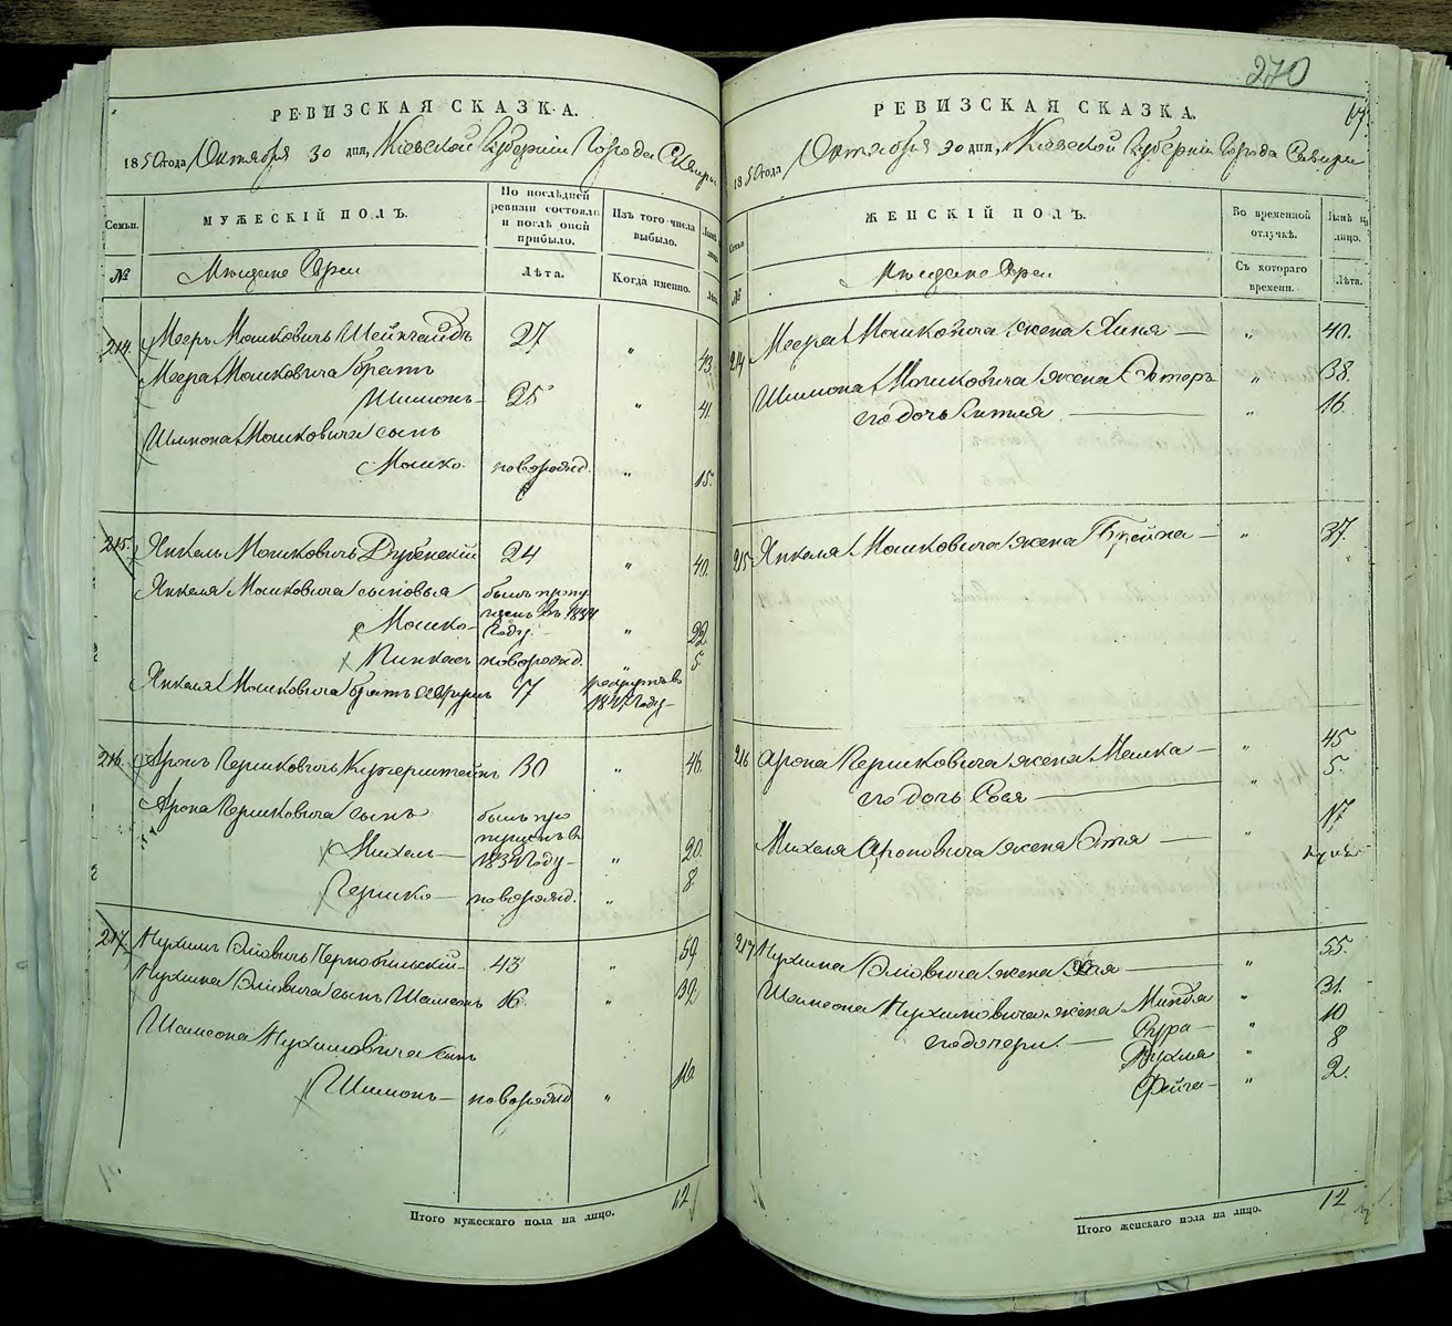 РЕВИЗСКАЯ СКАЗКА.
1850 года Октября 30 дня, Кіевской Губерніи Города Сквиры
Семьи.
МУЖЕСКІЙ ПОЛЪ.
По послѣдней ревизіи состояло и послѣ оной прибыло.
Изъ того числа выбыло.
№
Мѣщане Евреи
Лѣта.
Когда именно.
214. Мееръ Мошковичъ 27 " 43.
Меера Мошковича братъ
Шимонъ 25 " 41.
Шимона Мошковича сынъ
Мошко новорожд. " 15.
215. Янкель Мошковичъ Дубенскій 24 " 40.
Янкеля Мошковича сыновья былъ пропу
Мошко щенъ въ 1834 году. " 22.
Пинкасъ новорожд. " 5.
Янкеля Мошковича братъ 17 рекрутъ въ
Году
216. Аронъ Гершковичъ 30 " 46.
Арона Гершковича сынъ былъ про
пущенъ въ
Михель 1834 Году " 20.
Гершко новорожд. " 8.
217. Нухимъ Эліовичъ Чернобыльскій 43 " 59
Нухима Эліовича сынъ Шамсонъ 16 " 32.
Шамсона Нухимовича сынъ
Шимонъ новорожд " 16
Итого мужескаго пола на лицо. 12
270
67.
РЕВИЗСКАЯ СКАЗКА.
1850 года Октября 30 дня, Кіевской Губерніи Города Сквиры
Семьи
ЖЕНСКІЙ ПОЛЪ.
Во временной отлучкѣ.
Нынѣ на лицо.
№
Мѣщане Евреи
Съ котораго времени.
Лѣта.
214 Меера Мошковича жена " 40.
Шимона Мошковича жена Эстеръ " 38.
его дочь " 16.
215 Янкеля Мошковича жена Брейна " 37.
216 Арона Гершковича жена " 45
его дочь Сося " 5.
Михеля Ароновича жена Этя " 17
217 Нухима Эліовича жена Хая " 55.
Шамсона Нухимовича жена Миндля " 31.
его дочери. Сура " 10
Рухля " 8
Фейга " 2.
Итого женскаго пола на лицо. 12